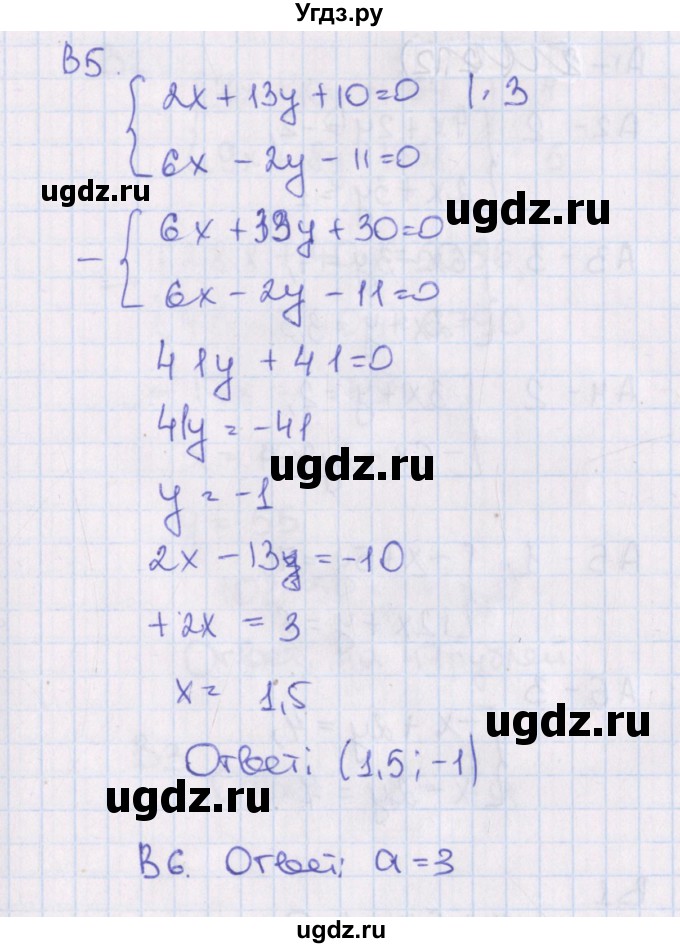 Угдз.ру
В5.
2x + 13y + 10 = 0 | · 3
6x - 2y - 11 = 0
ugdz.ru
ugdz.ru
- 6x + 39y + 30 = 0
6x - 2y - 11 = 0
41y + 41 = 0
41y = -41
ugdz.ru
y = -1
2x - 13 = -10
+2x = 3
x = 1,5
ugdz.ru
Ответ: (1,5; -1)
ugdz.ru
В6. Ответ: a = 3
ugdz.ru